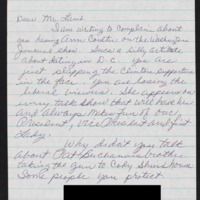 Dear Mr. Lamb
I am writing to complain about
you having Ann Coulter on the Washington
Journal show. Since a silly attitude
about living in D.C. you are
just slapping the Clinton supporters
in the face. You are losing the
liberal viewers. She appears on
every talk show that will have her
and always makes fun of our
President, Vice President and first
Lady.
Why didn't you talk
about Pat Buchanan's brother
taking the gun to Cody Shearer's house
Some people you protect